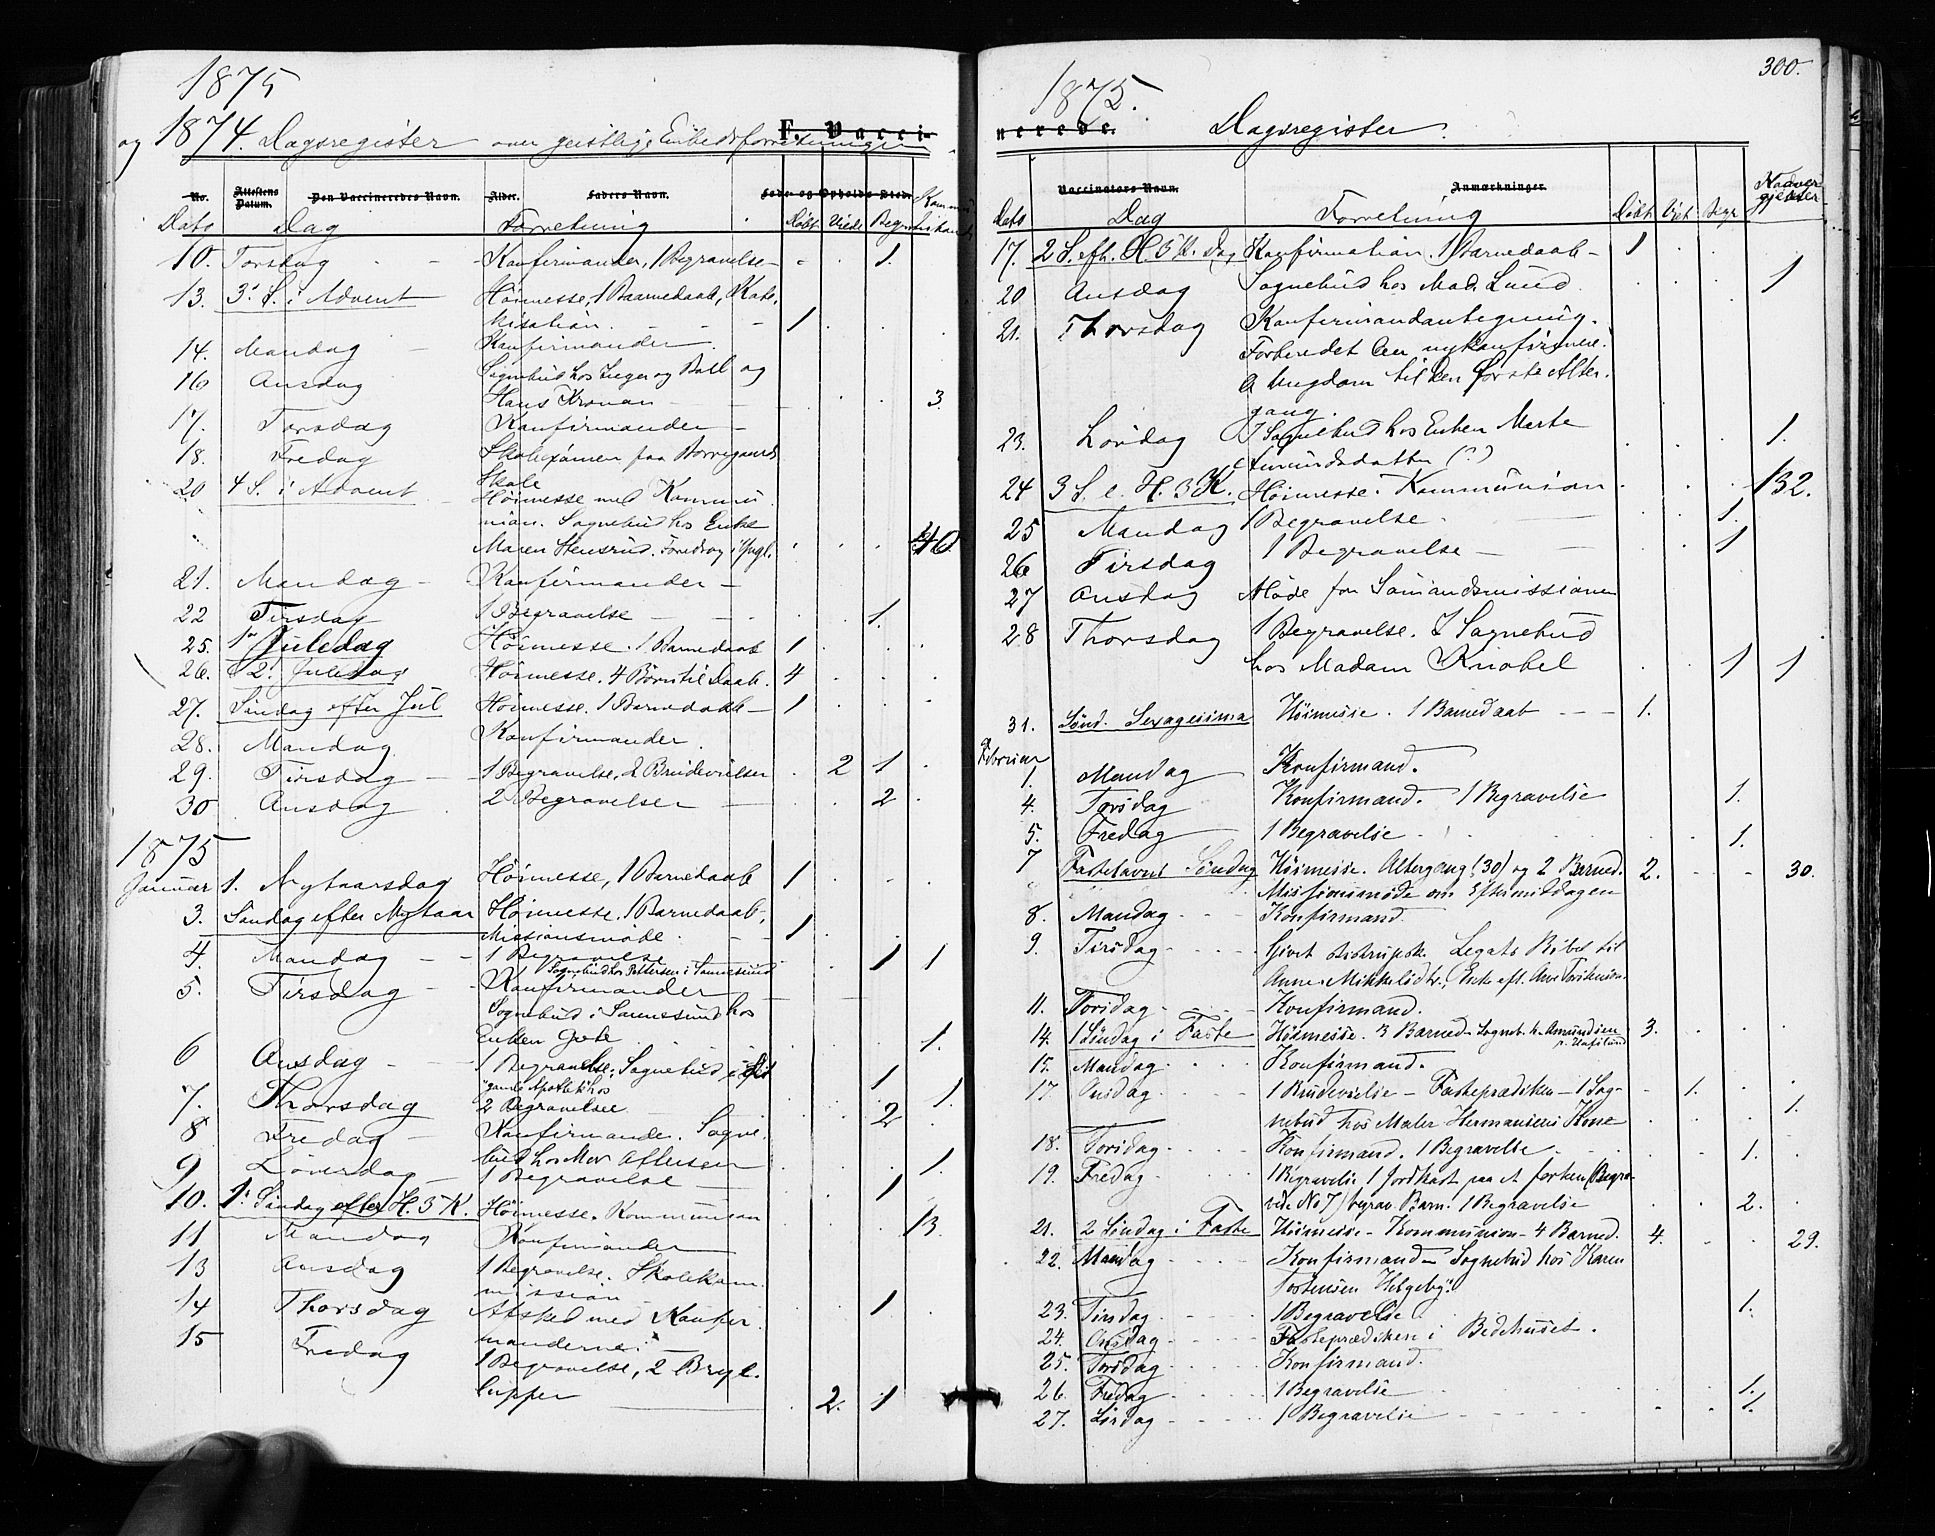 1875
og 1874. Dagsregister over geistlige Embedsforretninger
F. Vacci-
No. Attestens Datum. Den Vaccineredes Navn. Alder. Faders Navn. Føde- og Opholds-Sted.
Dato Dag Forretning Døbt Viede Begr.
10. Torsdag - - Konfirmander, 1 Begravelse - 1.
13. 3. S. i Advent Høimesse, 1 Barnedaab, Kate-
kisation. - - - 1
14. Mandag - Konfirmander.
16 Onsdag Sognebud hos og
Hans - - 3.
17. Torsdag Konfirmander -
18. Fredag Skoleexamen paa Borregaards
Skole
20 4 S. i Advent Høimesse med Kommu-
nion. Sognebud hos Enke
Maren Stensrud. Foredrag i Yngl. 40
21. Mandag - Konfirmander -
22 Tirsdag 1 Begravelse - - 1.
25. 1ste Juledag Høimesse. 1 Barnedaab 1
26. 2. Juledag Høimesse. 4 Børn til Daab. 4
27. Søndag efter Jul Høimesse. 1 Barnedaab - 1
28. Mandag Konfirmander.
29. Tirsdag - - 1 Begravelse, 2 Brudevielser 2 1
30 Onsdag 2 Begravelser - 2
1875
Januar 1. Nytaarsdag Høimesse, 1 Barnedaab 1
3. Søndag efter Nytaar Høimesse. 1 Barnedaab,
Missionsmøde. - - 1
4. Mandag - - 1 Begravelse 1 1
1 Sognebud hos Pettersen i Sannesund
5. Tirsdag - - Konfirmander
Sognebud i Sannesund hos
Enken 1.
6 Onsdag - 1 Begravelse, Sognebud i det
"gamle Apothek" hos 1
7. Thorsdag 2 Begravelser 2 1.
8 Fredag - Konfirmander. Sogne-
bud hos 1.
9 Løverdag - 1 Begravelse 1
10. 1. Søndag efter H. 3 K. Høimesse. Kommunion 13.
11 Mandag Konfirmander
13 Onsdag 1 Begravelse. Skolekom-
mission - 1
14 Thorsdag Afsked med Konfir-
manderne.
15 Fredag 1 Begravelse, 2 Bryl-
lupper 2. 1
300.
1875.
nerede. Dagsregister.
Vaccinators Navn. Anmærkninger.
Dato Dag Forretning Døbt Viet Begr.
17. 2 S. eft. H. 3 K. Dag Konfirmation. 1 Barnedaab - 1
20 Onsdag Sognebud hos Mad. Lund. 1
21. Thorsdag Konfirmandantegning.
Forberedet den nykonfirmere-
de Ungdom til den første Alter-
gang.
23. Lørdag I Sognebud hos Enken Marte
Amundsdatter (?) 1.
24 3 S. e. H. 3 K. Høimesse. Kommunion 132.
25 Mandag 1 Begravelse. 1.
26 Tirsdag 1 Begravelse - 1
27 Onsdag Møde for Sømandsmissionen
28 Thorsdag 1 Begravelse. I Sognebud
hos Madam Knobel 1 1
31. Sønd. Sexagesima Høimesse. 1 Barnedaab - - - 1.
Februar
1. Mandag Konfirmand.
4. Torsdag Konfirmand. 1 Begravelse 1.
5. Fredag 1 Begravelse 1.
7 Fastelavns Søndag Høimesse. Altergang (30) og 2 Barned. 2. - - 30.
Missionsmøde om Eftermiddagen
8. Mandag - - Konfirmand.
9. Tirsdag - - - Givet Legats Bibel til
Anne Mikkelsdtr., Enke eft.
11. Torsdag - - - Konfirmand.
14. 1 Søndag i Faste Høimesse. 3 Barned. Sogneb. h. Amundsen 3.
15. Mandag - - - Konfirmand.
17. Onsdag - - - 1 Brudevielse - Fasteprædiken - 1 Sog- 1.
nebud hos Maler Hermansens Kone 1.
18. Torsdag - - - Konfirmand. 1 Begravelse - 1.
19. Fredag - - - 1 Begravelse 1 Jordkast paa et forhen (Begra-
vede No 7) begrav. Barn. 1 Begravelse 2.
21. 2 Søndag i Faste Høimesse - Kommunion - 4 Barned. 4. 29.
22. Mandag - - - Konfirmand - Sognebud hos Karen
Torstensen Helgeby.
23. Tirsdag - - - 1 Begravelse 1.
24. Onsdag - - - Fasteprædiken i Bedehuset.
25. Torsdag - - - Konfirmand.
26. Fredag - - - 1 Begravelse 1.
27. Lørdag - - - 1 Begravelse - - - 1.